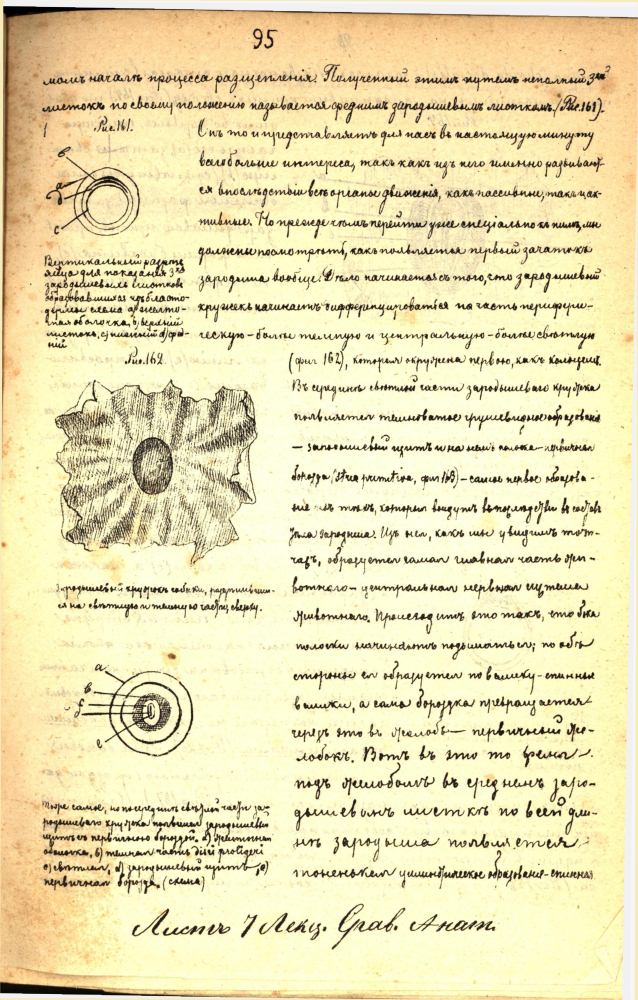 95
момъ началѣ процесса разщепленія. Полученный этимъ путемъ неполный 3ій
листокъ по своему положенію называется среднимъ зародышевымъ листкомъ (Рис. 161).
Рис. 161.
в
а
д
с
Вертикальный разрѣзъ
яйца для показанія 3хъ
зародышевыхъ листковъ
образовавшихся изъ бласто-
дермы: схема а) желточ-
ная оболочка, в) верхній
листокъ, с) нижній д) сред-
ній
Онъ то и представляетъ для насъ въ настоящую минуту
всего больше интереса, такъ какъ изъ него именно развивают-
ся впослѣдствіи всѣ органы движенія, какъ пассивные, такъ и ак-
тивные. Но прежде чѣмъ перейти уже спеціально къ нимъ, мы
должны посмотрѣть, какъ появляется первый зачатокъ
зародыша вообще. Дѣло начинается съ того, что зародышевый
кружекъ начинаетъ дифференцироваться на часть перифери-
ческую – болѣе темную и центральную – болѣе свѣтлую
(фиг 162), которая окружена первою, какъ кольцемъ.
Въ серединѣ свѣтлой части зародышеваго кружка
появляется темноватое грушевидное образованіе
– зародышевый щитъ и на немъ полоска – первичная
борозда (stria primitiva, фиг 163) – самое первое образова-
ніе изъ тѣхъ, которыя войдутъ впослѣдствіи въ составъ
тѣла зародыша. Изъ нея, какъ мы увидимъ тот-
часъ, образуется самая главная часть жи-
вотнаго – центральная нервная система
животнаго. Происходитъ это такъ, что бока
полоски начинаютъ подыматься; по обѣ
стороны ея образуется по валику – спинные
валики, а сама бороздка превращается
черезъ это въ желобъ – первичный же-
лобокъ. Вотъ въ это то время
подъ желобомъ въ среднемъ заро-
дышевомъ листкѣ по всей дли-
нѣ зародыша появляется
тоненькое цилиндрическое образованіе – спинная
Рис. 162.
Зародышевый кружокъ собаки, раздѣливший-
ся на свѣтлую и темную части, сверху.
а
в
д
с
Тоже самое, но посрединѣ свѣтлой части за-
родышеваго кружка появился зародышевый
щитъ съ первичною бороздой. а) желточная
оболочка, в) темная часть
с) свѣтлая, д) зародышевый щитъ, е)
первичная борозда. (схема)
Листъ 7 Лекц. Срав. Анат.